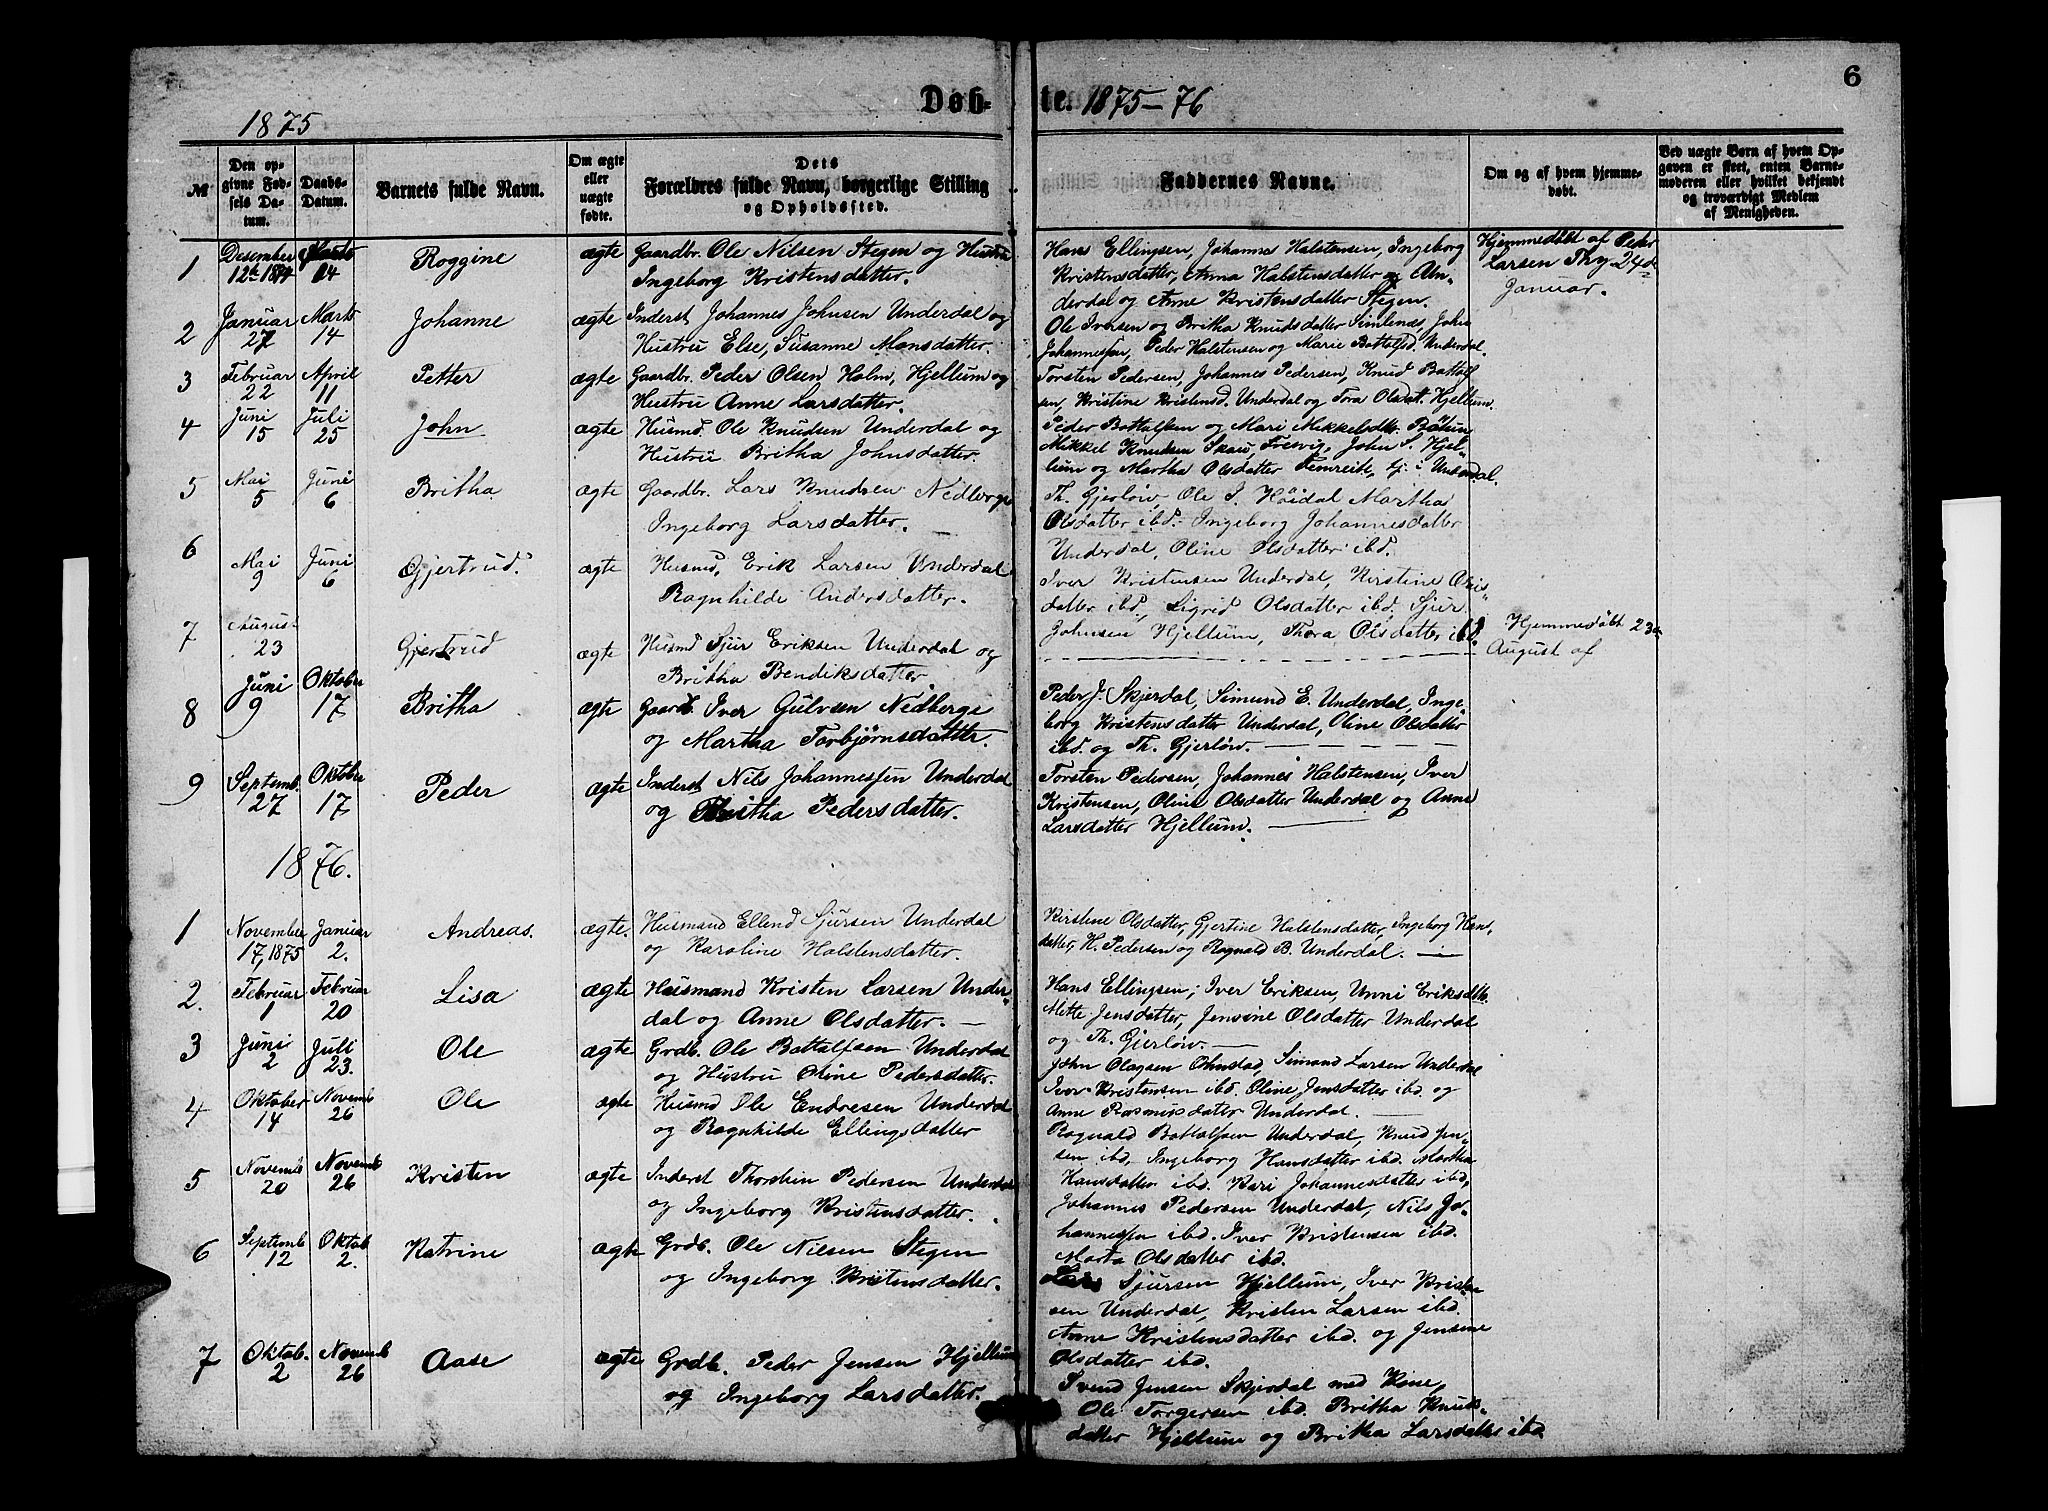 6
Døb- te. 1875–76
1875
№
Den opgivne Fødsels Datum.
Daabs-Datum.
Barnets fulde Navn.
Om ægte eller uægte fødte.
Dets Forældres fulde Navn, borgerlige Stilling og Opholdssted.
Faddernes Navne.
Om og af hvem hjemmedøbt.
Ved uægte Børn af hvem Opgaven er skeet, enten Barnemoderen eller hvilket bekjendt og troværdigt Medlem af Menigheden.
1 Desember 12te 1874 Marts 14 Roggine ægte Gaardbr. Ole Nilsen Stegen og Hustru
Ingeborg Kristensdatter.
Hans Ellingsen, Johannes Halstensen, Ingeborg
Kristensdatter, Anna Halstensdatter Un-
derdal og Anne Kristensdatter Stegen.
Hjemmedøbt af Peder
Larsen Thy 24de
Januar.
2 Januar 27 Marts 14 Johanne ægte Inderst Johannes Johnsen Underdal og
Hustru Else, Susanne Monsdatter.
Ole Iversen og Britha Knudsdatter Simlenæs, John
Johannessen, Peder Halstensen og Marie Bottolfsd. Underdal.
3 Februar 22 April 11 Petter ægte Gaardbr. Peder Olsen Holm, Hjellum og
Hustru Anne Larsdatter.
Torsten Pedersen, Johannes Pedersen, Knud Bottolf
sen, Kristine Kristensd. Underdal og Tora Olsdat. Hjellum.
4 Juni 15 Juli 25 John ægte Husmd. Ole Knudsen Underdal og
Hustru Britha Johnsdatter.
Peder Bottolfsen og Mari Mikkelsdtr.
Mikkel Knudsen Skau, Fresvig, John S. Hjel-
lum og Martha Olsdatter Femreite, tj. i Underdal.
5 Mai 5 Juni 6 Britha ægte Gaardbr. Lars Knudsen Nedberge
Ingeborg Larsdatter.
Th. Gjerløw Ole I. Høidal Martha
Olsdatter ibd. Ingeborg Johannesdatter
Underdal, Oline Olsdatter ibd.
6 Mai 9 Juni 6 Gjertrud. ægte Husmd. Erik Larsen Underdal
Ragnhilde Andersdatter.
Iver Kristensen Underdal, Kirstine Ols-
datter ibd. Sigrid Olsdatter ibd. Sjur
Johnsen Hjellum, Thora Olsdatter ibd.
7 August 23 Gjertrud ægte Husmd Sjur Eriksen Underdal og
Britha Bendiksdatter
Hjemmedøbt 23de
August af
8 Juni 9 Oktober 17 Britha ægte Gaardb. Iver Gulvsen Nedberge
og Martha Torbjørnsdatter.
Peder J. Skjerdal, Simund E. Underdal, Inge-
borg Kristensdatter Underdal, Oline Olsdatter
ibd. og Th. Gjerløw.
9 Septemb. 27 Oktober 17 Peder ægte Inderst Nils Johannessen Underdal
og Britha Pedersdatter.
Torsten Pedersen, Johannes Halstensen, Iver
Kristensen, Oline Olsdatter Underdal og Anne
Larsdatter Hjellum.
1876.
1 November 17, 1875 Januar 2. Andreas. ægte. Husmand Ellend Sjursen Underdal
og Karoline Halstensdatter.
Kirstene Olsdatter, Gjertine Halstensdatter, Ingeborg Han,
datter, H. Pedersen og Ragnald B. Underdal.
2. Februar 1 Februar 20 Lisa ægte Husmand Kristen Larsen Under-
dal og Anne Olsdatter.
Hans Ellingsen; Iver Eriksen, Unni Eriksdtr.
Mette Jensdatter, Jensine Olsdatter Underdal
og Th. Gjerløw.
3 Juni 2 Juli 23. Ole ægte Grdb. Ole Bottolfsen Underdal
og Hustru Oline Pedersdatter.
John Olagsen Ohnstad, Simund Larsen Underdal
Iver Kristensen ibd. Oline Jensdatter ibd. og
Anne Rasmusdatter Underdal.
4 Oktober 14 Novemb 26 Ole ægte Husmd Ole Endresen Underdal
og Ragnhilde Ellingsdatter
Ragnald Bottolfsen Underdal, Knud Jen-
sen ibd, Ingeborg Hansdatter ibd. Martha
Hansdatter ibd. Kari Johannesdatter ibd,
5 Novemb 20 Novemb 26 Kristen ægte Inderst Thorstein Pedersen Underdal
og Ingeborg Kristensdatter.
Johannes Pedersen Underdal, Nils Jo-
hannessen ibd. Iver Kristensen ibd.
Marta Olsdatter ibd.
6 Septemb 12 Oktob 2. Katrine ægte Grdb. Ole Nilsen Stegen
og Ingeborg Kristensdatter.
Lars Sjursen Hjellum, Iver Kristen
sen Underdal, Kristen Larsen ibd.
Anne Kristensdatter ibd. og Jensine
Olsdatter ibd.
7 Oktob. 2 Novemb 26 Aase ægte Grdb. Peder Jensen Hjellum
og Ingeborg Larsdatter.
Svend Jensen Skjerdal med Kone,
Ole Torgersen ibd. Britha Knuds-
datter Hjellum og Britha Larsdatter ibd